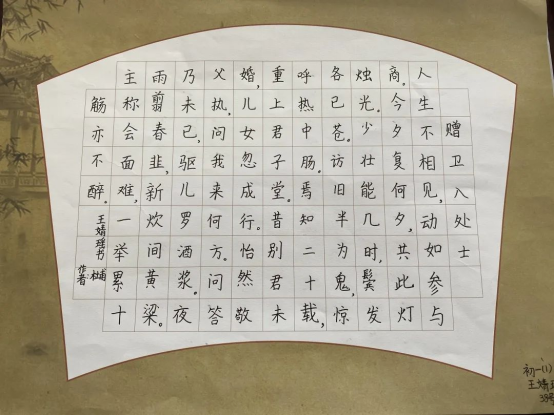 赠卫入处士
人生不相见,动如参与
商。今夕复何夕,共此灯
烛光。少壮能几时,鬓发
各已苍。访旧半为鬼,惊
呼热中肠。焉知二十载,
重上君子堂。昔别君未
婚,儿女忽成行。怡然敬
父执,问我来何方。问答
乃未已,驱儿罗酒浆。夜
雨翦春韭,新炊间黄梁。
主称会面难,一举累十
觞亦不醉。
王婧瑶书
作者:杜甫
初一(1)
王婧